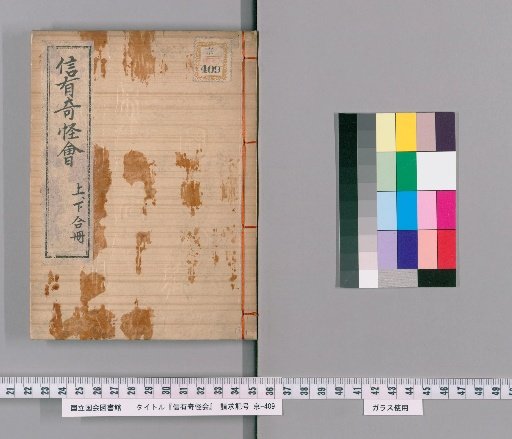 信有奇怪會
上下合冊
京
409
21 22 23 24 25 26 27 28 29 30 31 32 33 34 35 36 37 38 39 40 41 42 43 44 45 46 47 48 49
国立国会図書館 タイトル『信有奇怪会』 請求記号 京-409
ガラス使用